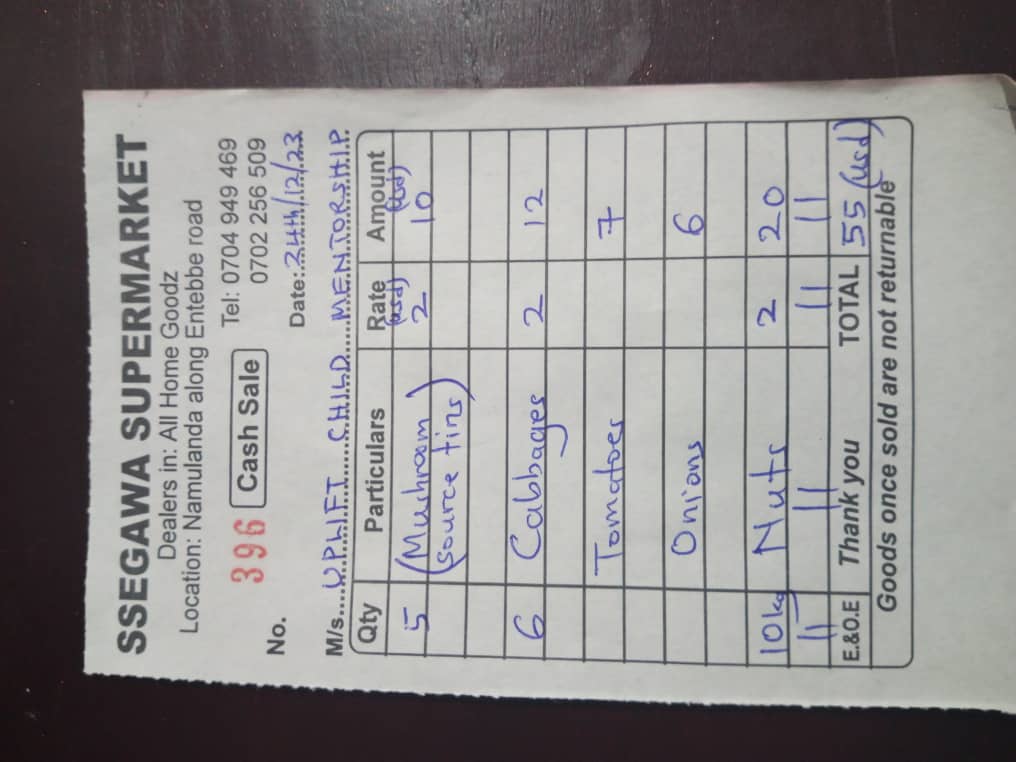 SSEGAWA SUPERMARKET
Dealers in: All Home Goodz
Location: Namulanda along Entebbe road
Tel: 0704 949 469
0702 256 509
No. 396 Cash Sale
Date: 24th/12/23
M/s. UPLIFT CHILD MENTORSHIP
Qty Particulars Rate (usd) Amount (usd)
5 (Mushroom 2 10
source tins)
6 Cabbages 2 12
Tomatoes 7
Onions 6
10kg Nuts 2 20
E.&O.E Thank you TOTAL 55 (usd)
Goods once sold are not returnable